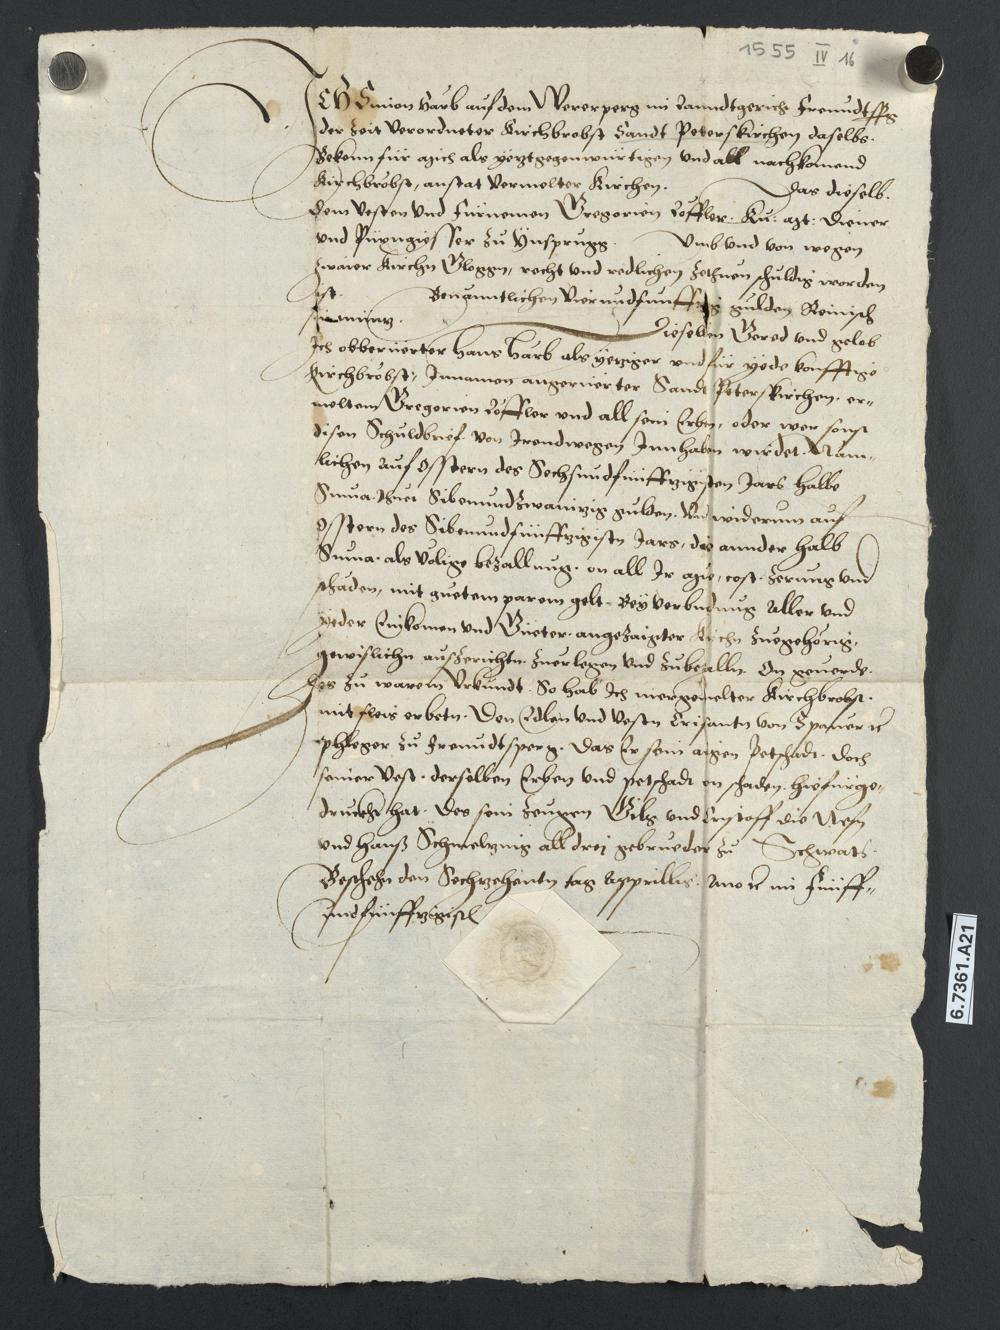 1555 IV 16
ICH Simon Härb auf dem Wererperg im Lanndtgericht Freundtspg
der Zeit Verordneter Kirchbrobst Sandt Peterskirchen daselbs.
Bekenn für mich als yeztgegenwürtigen vnd all nachkomend
Kirchbröbst, anstat vermelter Kirchen. Das dieselb.
Dem Vesten vnd Fürnemen Gregorien Löffler. Kü: Diener
vnd Püxngiesser zu Ynsprugg. Vmb vnd von wegen
zwaier Kirchn Gloggn, recht vnd redlichen schuldig worden
ist. Benanntlichen Viervndfunffzig gulden Reinisch
Dieselben Gered vnd gelob
Ich obberüerter Hans Härb als yeziger vnd für yede konfftige
Kirchbröbst, Innamen angerüerter Sandt Peterskirchen. er=
meltem Gregorien Löffler vnd all sein Erben, oder wer sonst
disen Schuldbrief von Irendwegen Innhaben wirdet. Nam=
lichen auf Osstern des Sechsundfünffzigisten Jars halbe
Suma. Sibenundzwainzig gulden. Vnd widerum auf
Osstern des Sibenundfünffzigisten Jars, die annder halb
Suma. als völige bezallung. on all Ir cost. zerung vnd
schaden, mit guetem parem gelt. Bey verbindnus aller vnd
yeder Einkomen vnd Güeter. angezaigter Kirchn zuegehörig,
gewislichn auszerichtn. zuerlegen vnd zubezalln. On geuerde.
Des zu warem Vrkundt. So hab Ich mergemelter Kirchbrobst.
mit fleis erbetn. Den Edlen vnd Vestn Crisantn von Spaur ꝛc
phleger zu Freundtsperg. Das Er sein aigen Petschadt. Doch
seiner Vest. derselben Erben vnd petschadt on schaden. hiefürge=
druckht hat. Des sein zeugen Gilg vnd Cristoff die
vnd Hannß Schmelzing all drei gebrueder zu Schwats.
Beschehn den Sechzehentn tag Apprillis. Anno ꝛc im Fünff=
undfünffzigistn
6.7361.A21